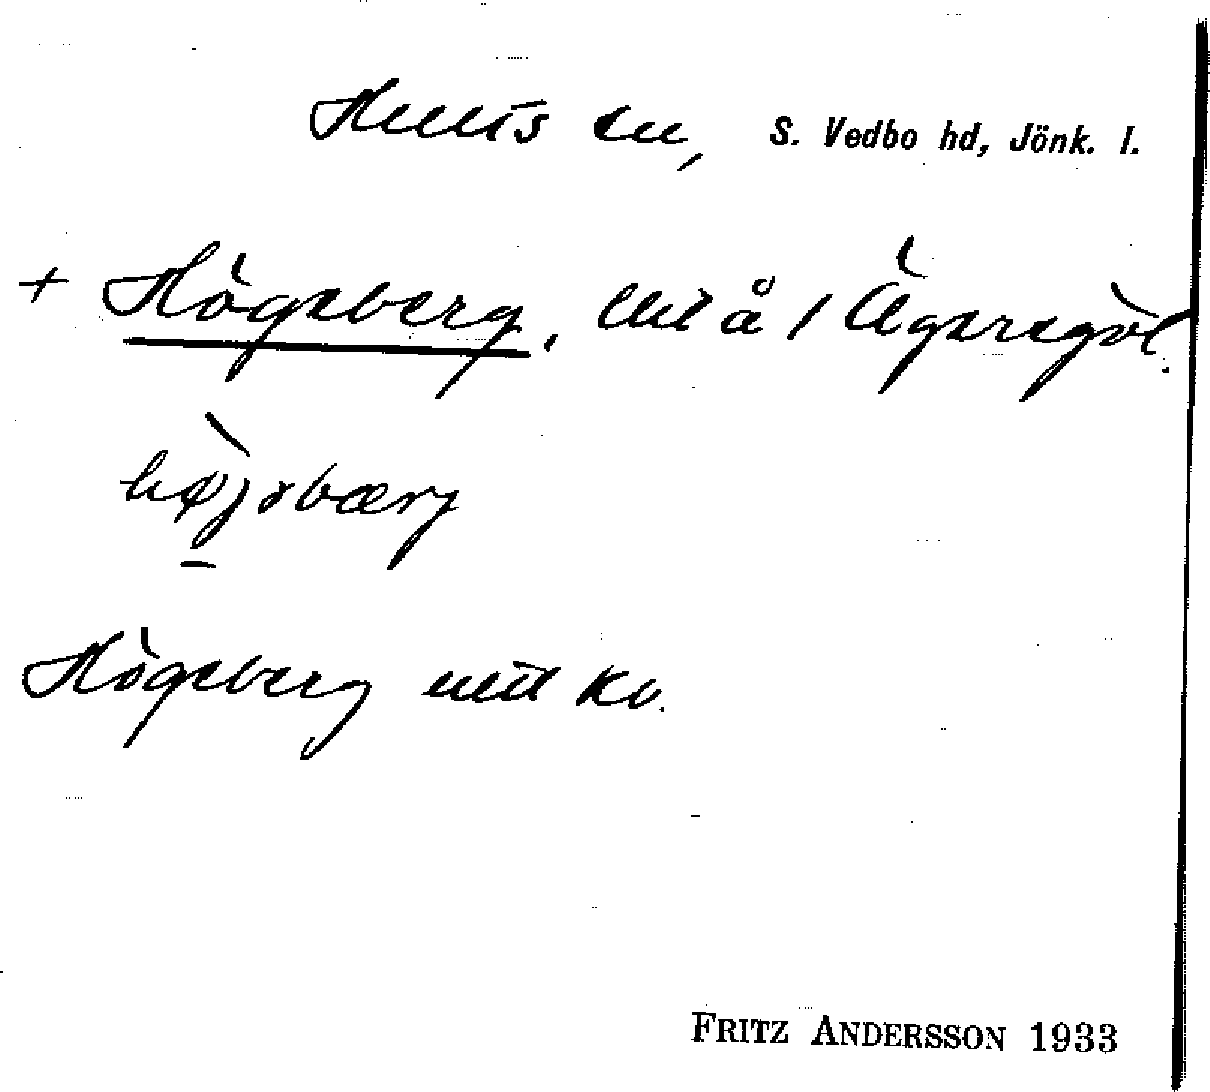 Hults sn, S. Vedbo hd, Jönk. l.
+ Högsberg, lht å / Ägersgöl.
højsbærj
Högsberg
FRITZ ANDERSSON 1933